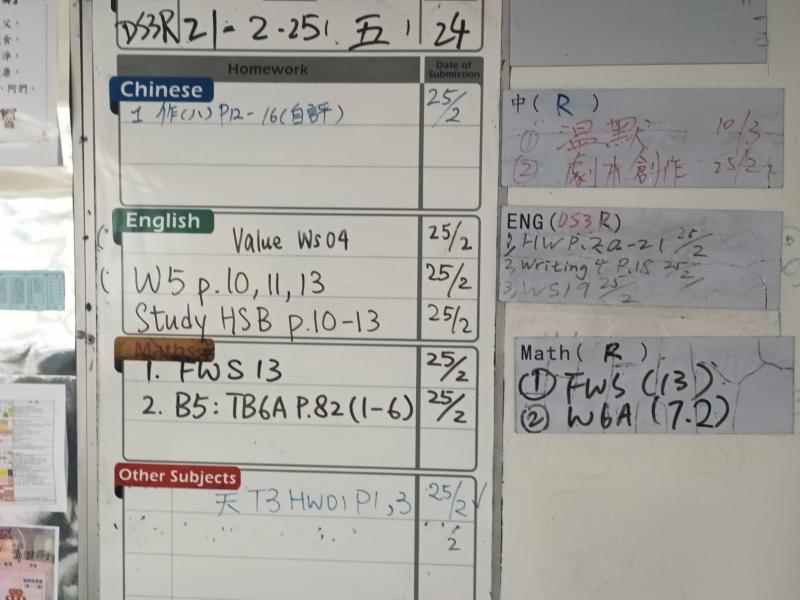 DS3R 21-2-25(五) 24
Homework Date of Submission
Chinese
1 作(八) P12-16(自評) 25/2
English
Value Ws 04 25/2
W5 p.10, 11, 13 25/2
Study HSB p.10-13 25/2
Maths
1. FWS 13 25/2
2. B5: TB6A P.82 (1-6) 25/2
Other Subjects
天 T3 HW01 P1,3 25/2 ✓
2
中( R )
① 溫默 10/3
② 劇本創作 25/2
ENG(DS3R)
1, HW P.20-21 25/2
2, Writing 4 P.18 25/2
3, WS19 25/2
Math( R )
① FWS (13)
② W6A (7.2)
父,
食,
淨,
康,
阿們。